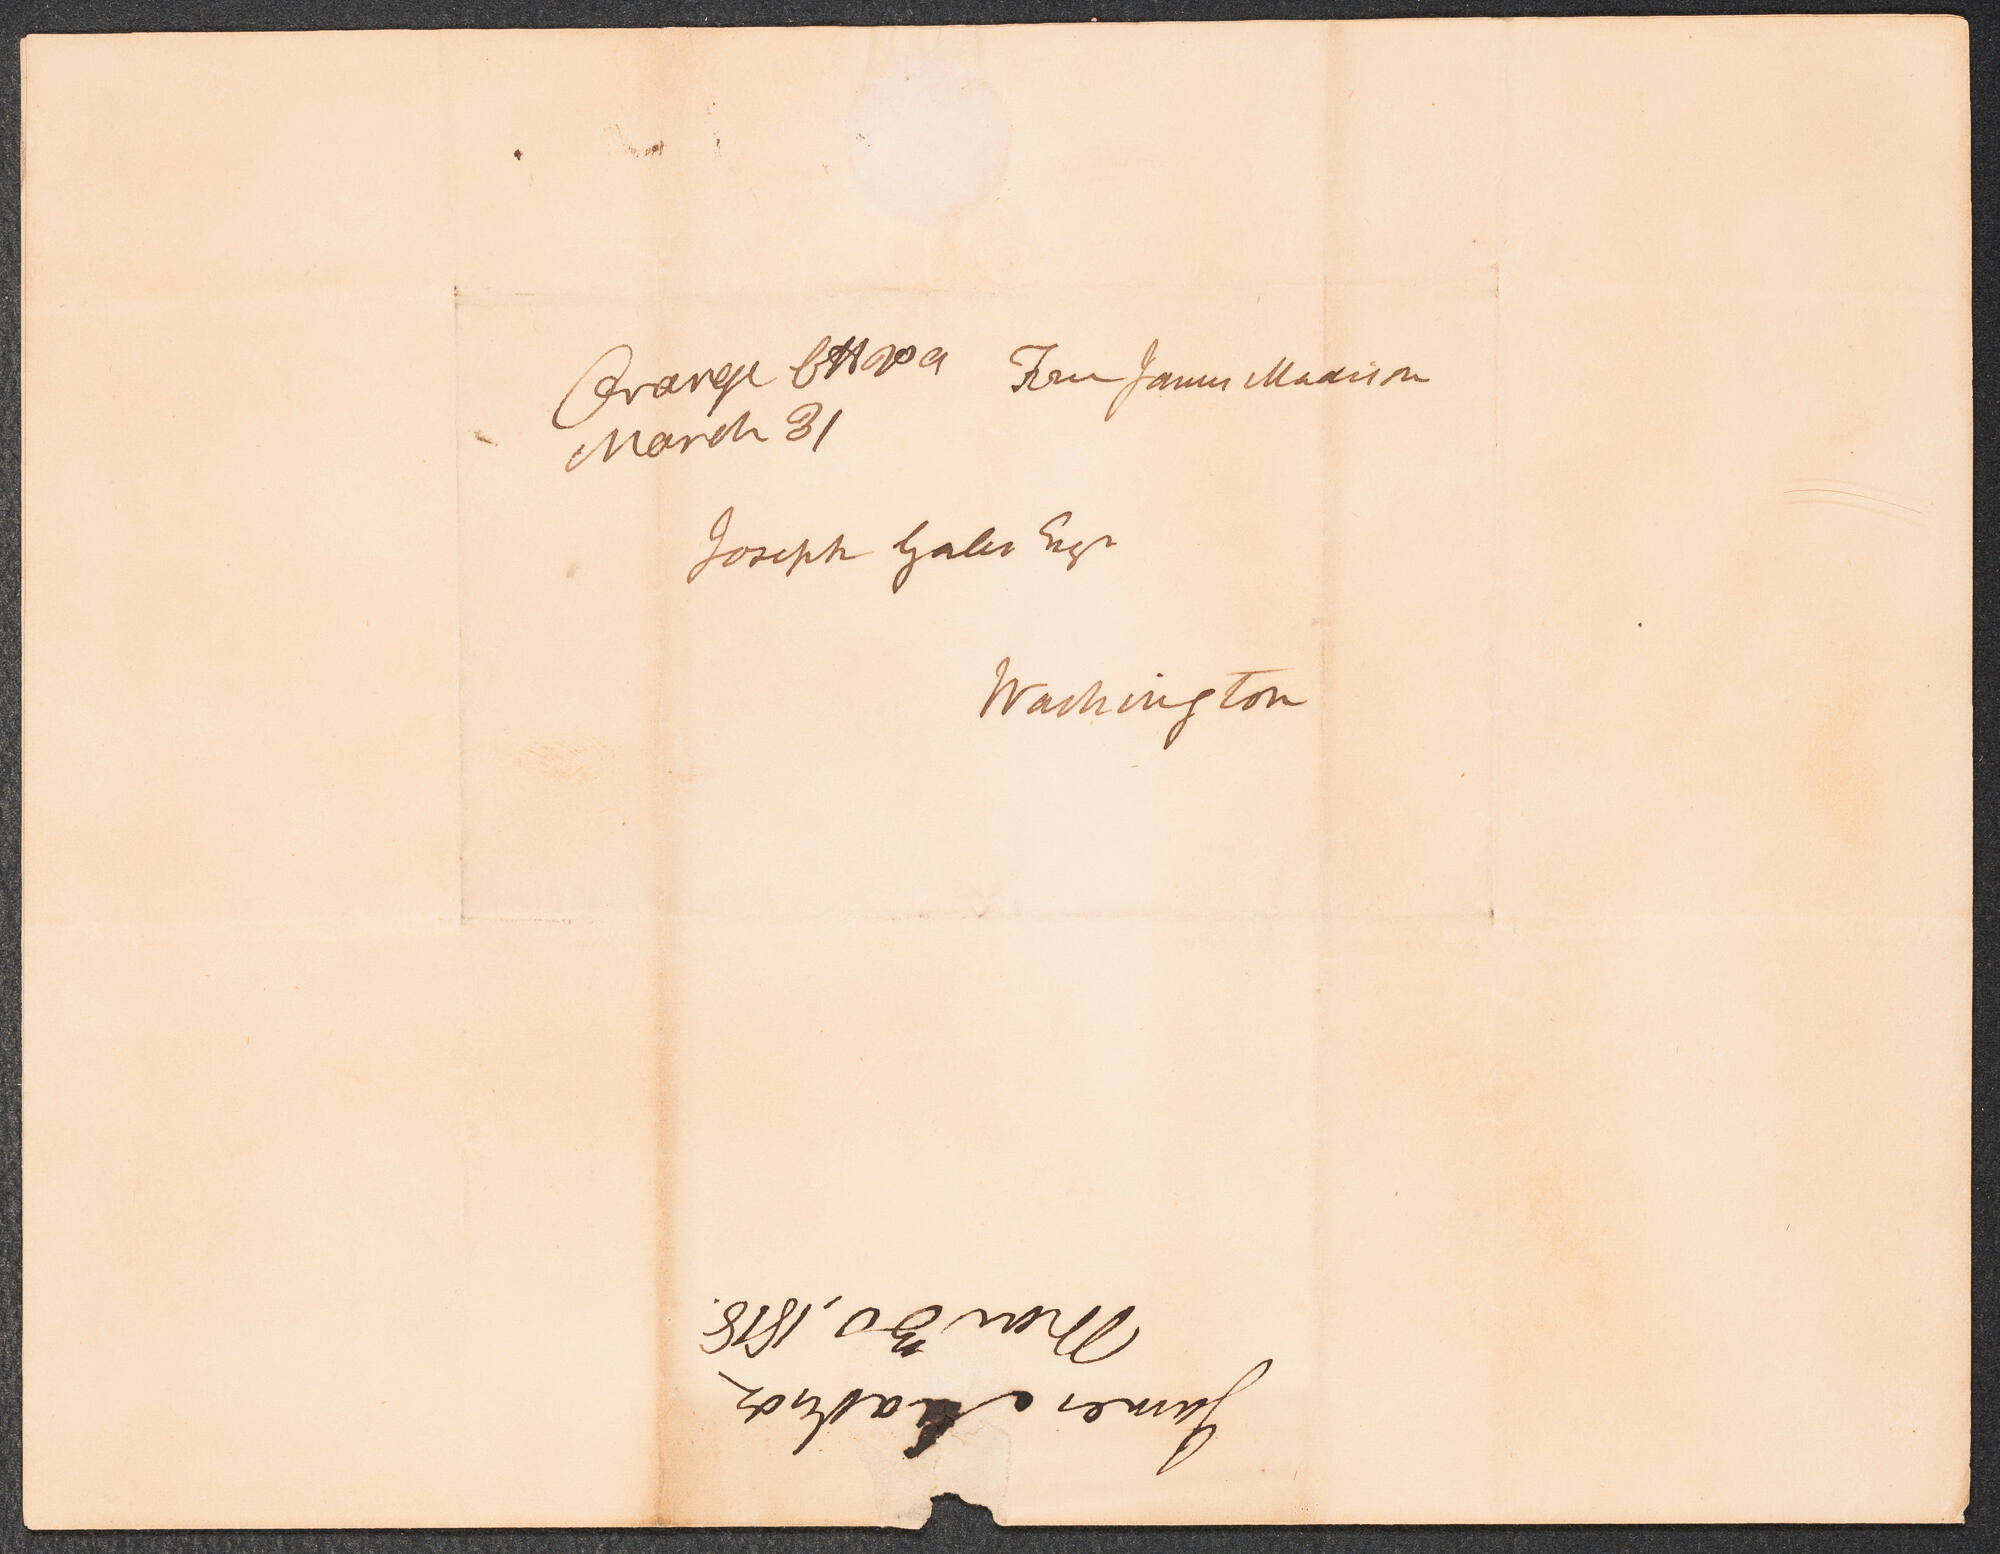 Orange CH Va
March 31
Free James Madison
Joseph Gales Esqr
Washington
James Madison
Mar 30, 1818.